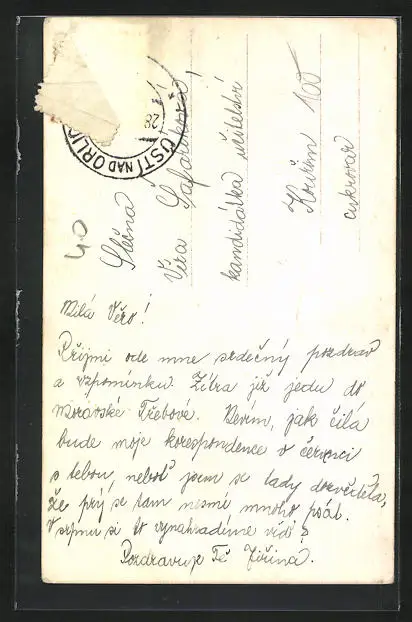 ÚSTÍ NAD ORLICÍ
28
40
Slečna
Věra Šafaříková
kandidátka učitelství
Kouřim 100
cukrovar
Milá Věro!
Přijmi ode mne srdečný pozdrav
a vzpomínku. Zítra již jedu do
Moravské Třebové. Nevím, jak čilá
bude moje korespondence v červenci
s tebou, neboť jsem se tady dozvěděla,
že prý se tam nesmí mnoho psát.
V srpnu si to vynahradíme viď?
Pozdravuje Tě Jiřina.